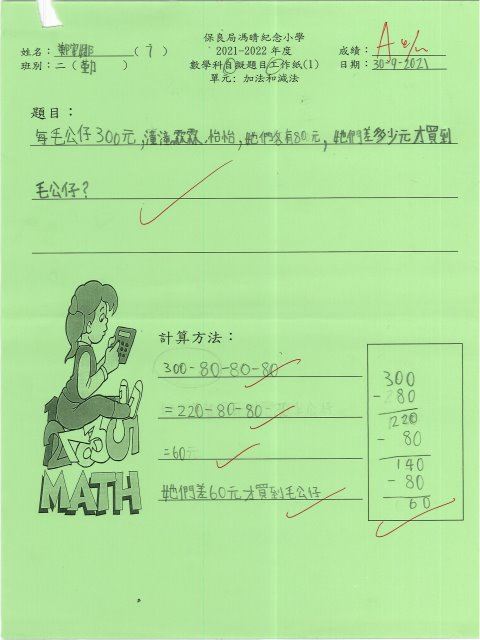 保良局馮晴紀念小學
姓名： ( 7 ) 2021-2022 年度 成績：A
班別：二（勤） 數學科自擬題目工作紙(1) 日期：30-9-2021
單元：加法和減法
題目：
每毛公仔300元，霖霖、怡怡，她們各有80元，她們差多少元才買到
毛公仔？
計算方法：
300-80-80-80
=220-80-80
=60元
她們差60元才買到毛公仔
300
- 80
220
- 80
140
- 80
60
MATH